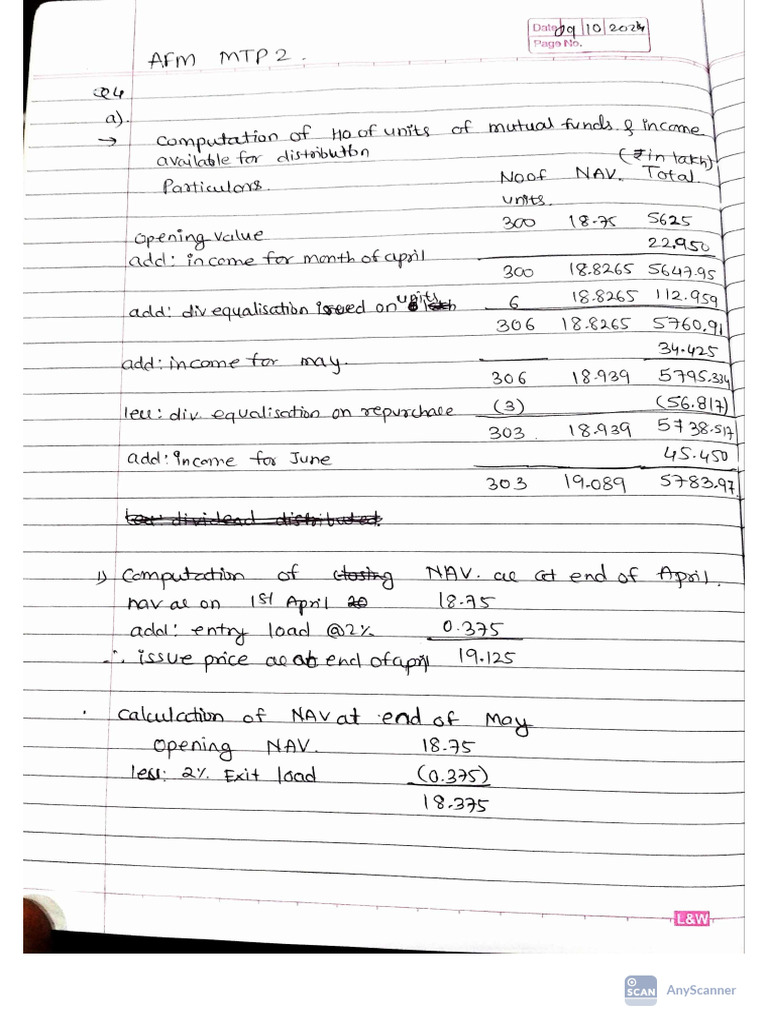 Date 09 10 2024
Page No.
AFM MTP 2.
Q4
a).
→ Computation of No of units of mutual funds & income
available for distribution
(₹ in lakh)
Particulars. No of NAV. Total.
units.
Opening value 300 18.75 5625
add: income for month of april 22.950
300 18.8265 5647.95
add: div equalisation issued on units 6 18.8265 112.959
306 18.8265 5760.91
add: income for may. 34.425
306 18.939 5795.334
less: div. equalisation on repurchase (3) (56.817)
303 18.939 5738.517
add: income for June 45.450
303 19.089 5783.97
less: dividend distributed.
1) Computation of closing NAV. as at end of April.
nav as on 1st April 20 18.75
add: entry load @2% 0.375
∴ issue price as at end of april 19.125
. Calculation of NAV at end of May
Opening NAV. 18.75
less: 2% Exit load (0.375)
18.375
L&W
SCAN AnyScanner